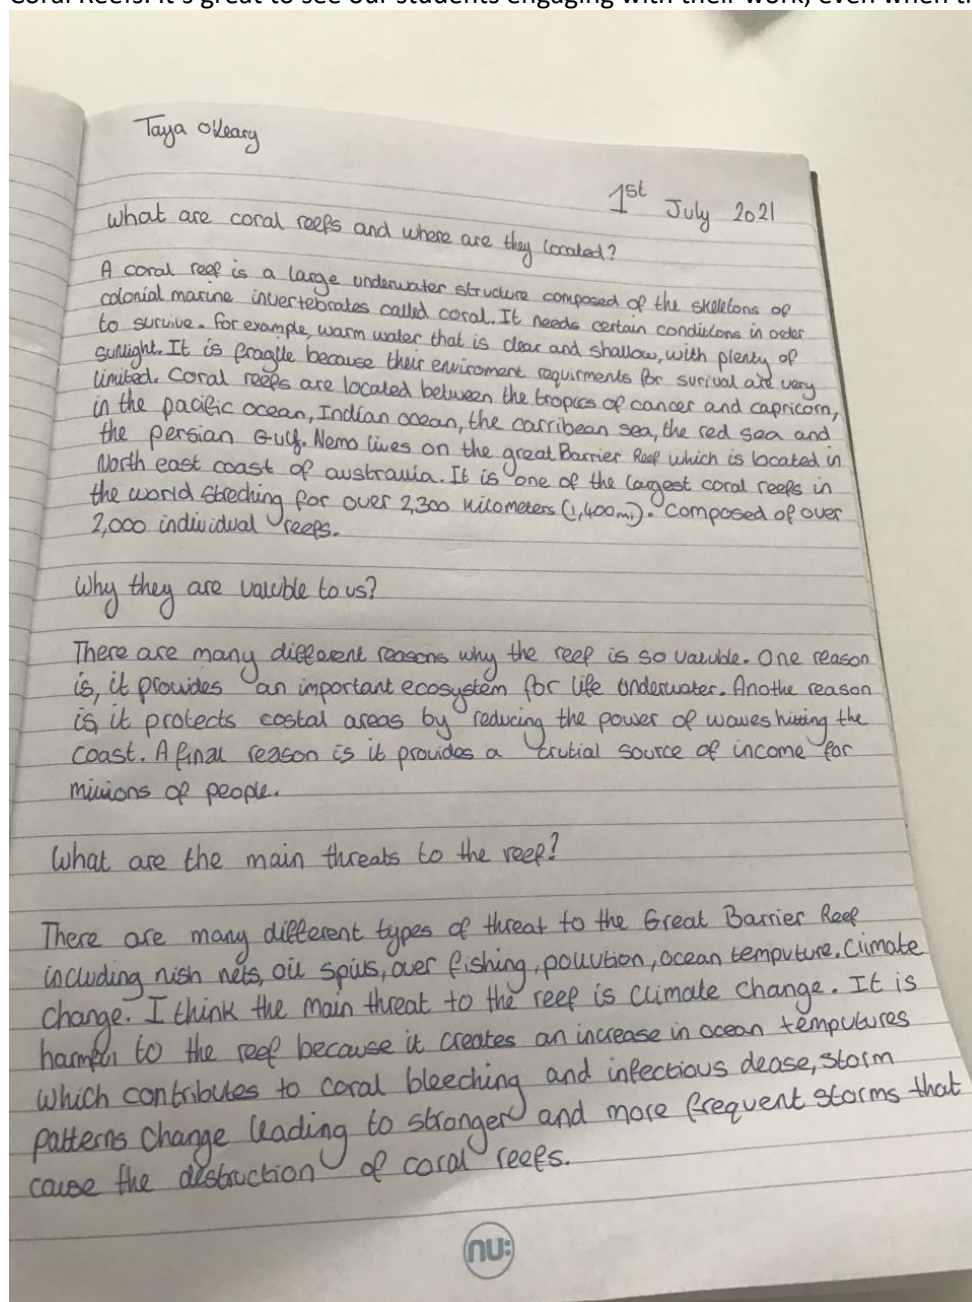 Coral Reefs. It's great to see our students engaging with their work, even when
Taya O'Leary
1st July 2021
What are coral reefs and where are they located?
A coral reef is a large underwater structure composed of the skeletons of
colonial marine invertebrates called coral. It needs certain condistons in order
to survive. For example, warm water that is clear and shallow, with plenty of
sunlight. It is fragile because their enviroment requirments for surival are very
limited. Coral reefs are located between the tropics of cancer and capricorn,
in the pacific ocean, Indian ocean, the carribean sea, the red sea and
the persian Gulf. Nemo lives on the great Barrier Reef which is located in
North east coast of australia. It is one of the largest coral reefs in
the world streching for over 2,300 kilometers (1,400mi). Composed of over
2,000 individual reefs.
Why they are valuble to us?
There are many different reasons why the reef is so valuble. One reason
is, it provides an important ecosystem for life underwater. Anothe reason
is it protects costal areas by reducing the power of waves hitting the
coast. A final reason is it provides a crutial source of income for
millions of people.
What are the main threats to the reef?
There are many different types of threat to the Great Barrier Reef
including nish nets, oil spills, over fishing, pollution, ocean temputure. Climate
change. I think the main threat to the reef is climate change. It is
harmful to the reef because it creates an increase in ocean temputures
which contributes to coral bleeching and infectious dease, storm
patterns change leading to stronger and more frequent storms that
cause the destruction of coral reefs.
nu: